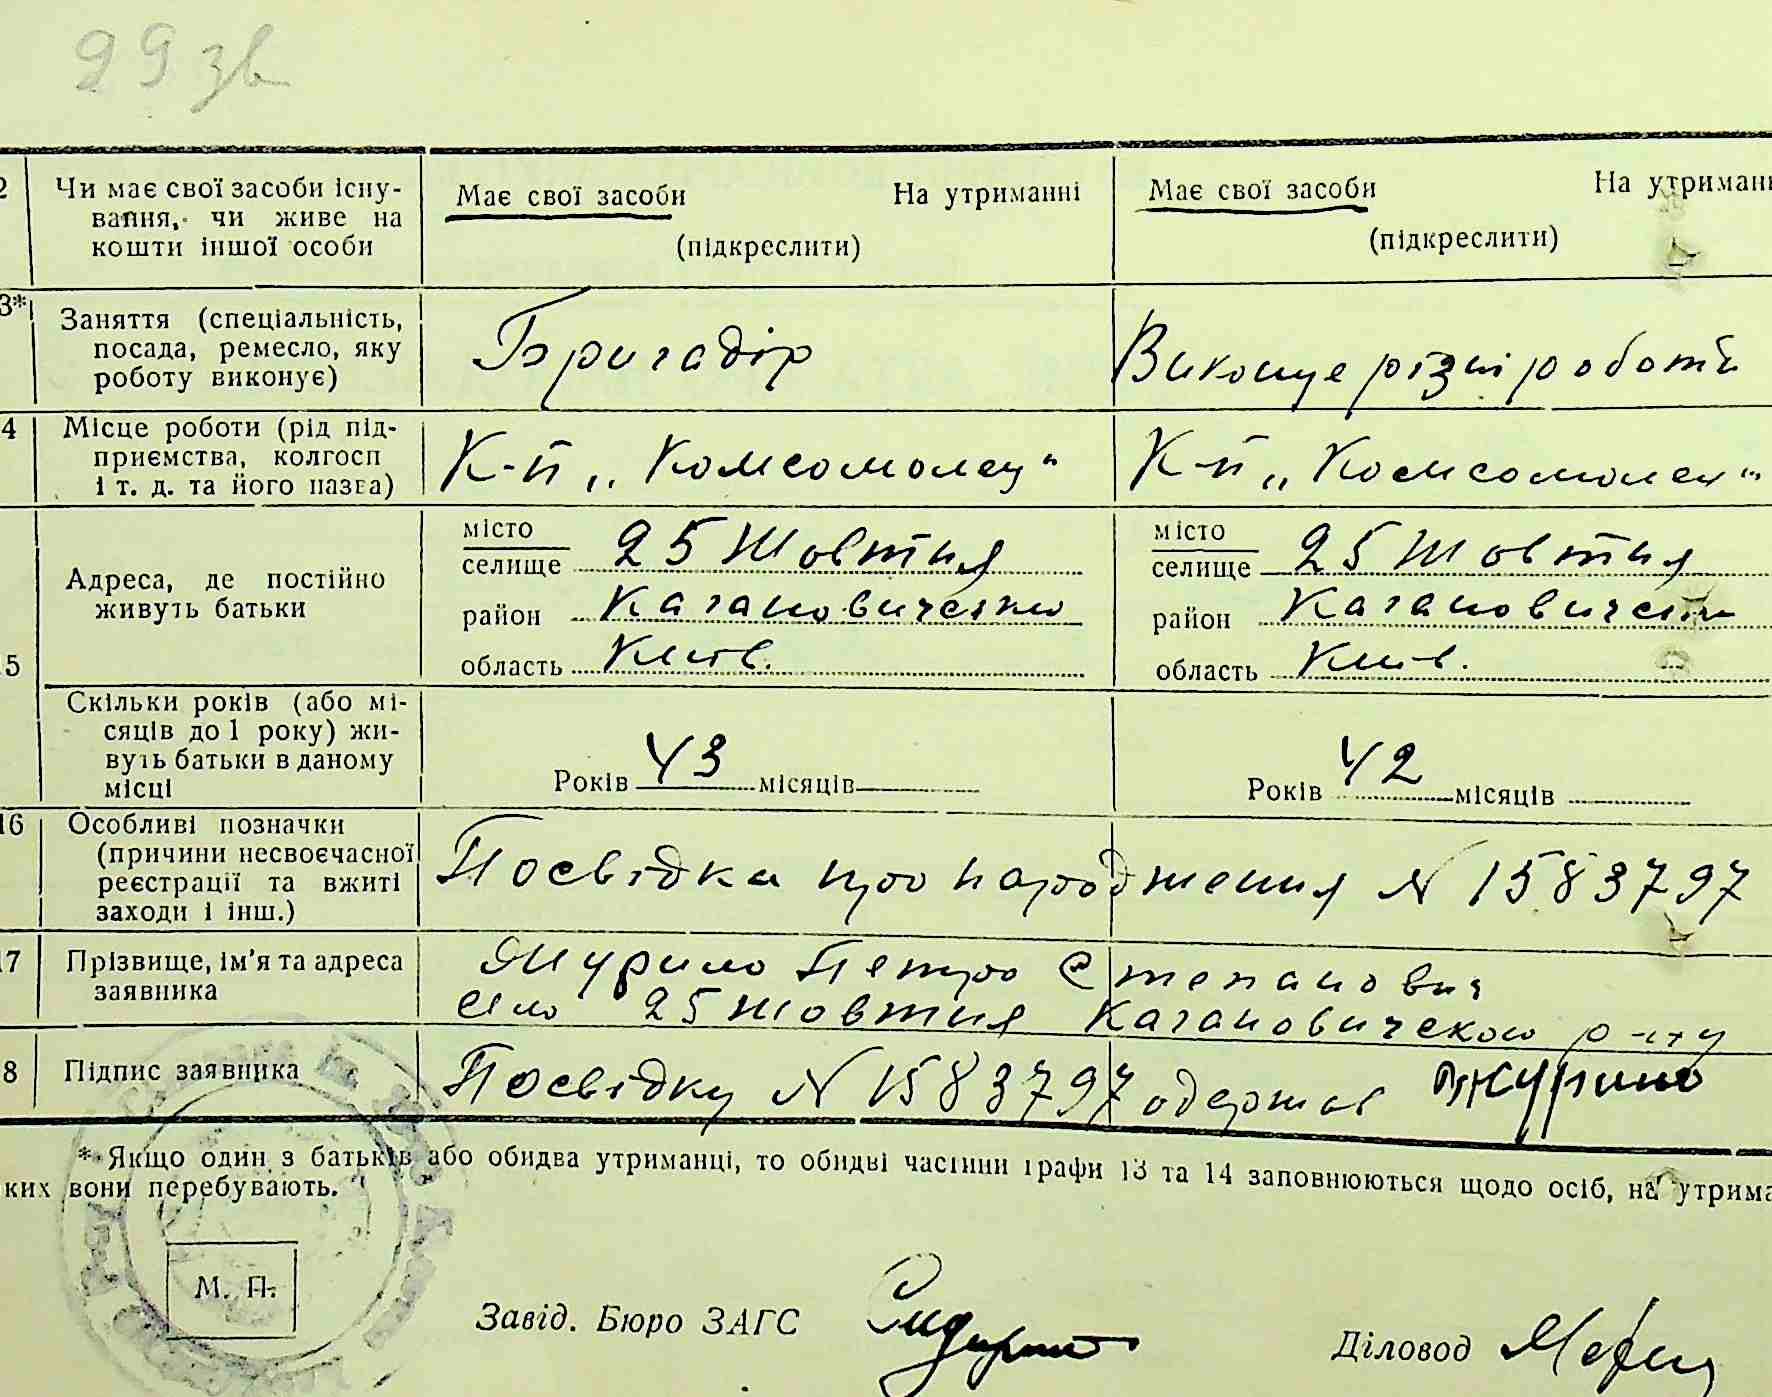 29 зв
2 Чи має свої засоби існу-
вання, чи живе на
кошти іншої особи
Має свої засоби На утриманні
(підкреслити)
Має свої засоби На утриманн
(підкреслити)
3* Заняття (спеціальність,
посада, ремесло, яку
роботу виконує)
Бригадір
Виконує різні роботи
4 Місце роботи (рід під-
приємства, колгосп
і т. д. та його назва)
К-п „Комсомолец"
К-п „Комсомолец"
5 Адреса, де постійно
живуть батьки
місто
селище 25 Жовтня
район Кагановический
область Київ.
місто
селище 25 Жовтня
район Кагановический
область Київ.
Скільки років (або мі-
сяців до 1 року) жи-
вуть батьки в даному
місці
Років 43 місяців
Років 42 місяців
16 Особливі позначки
(причини несвоєчасної
реєстрації та вжиті
заходи і інш.)
Посвідка про народження N 1583797
17 Прізвище, ім'я та адреса
заявника
Журило Петро Степанович
село 25 Жовтня Кагановичского р-ну
8 Підпис заявника
Посвідку N 1583797 одержав Журило
* Якщо один з батьків або обидва утриманці, то обидві частини графи 13 та 14 заповнюються щодо осіб, на утрима
ких вони перебувають.
М. П.
Завід. Бюро ЗАГС
Діловод